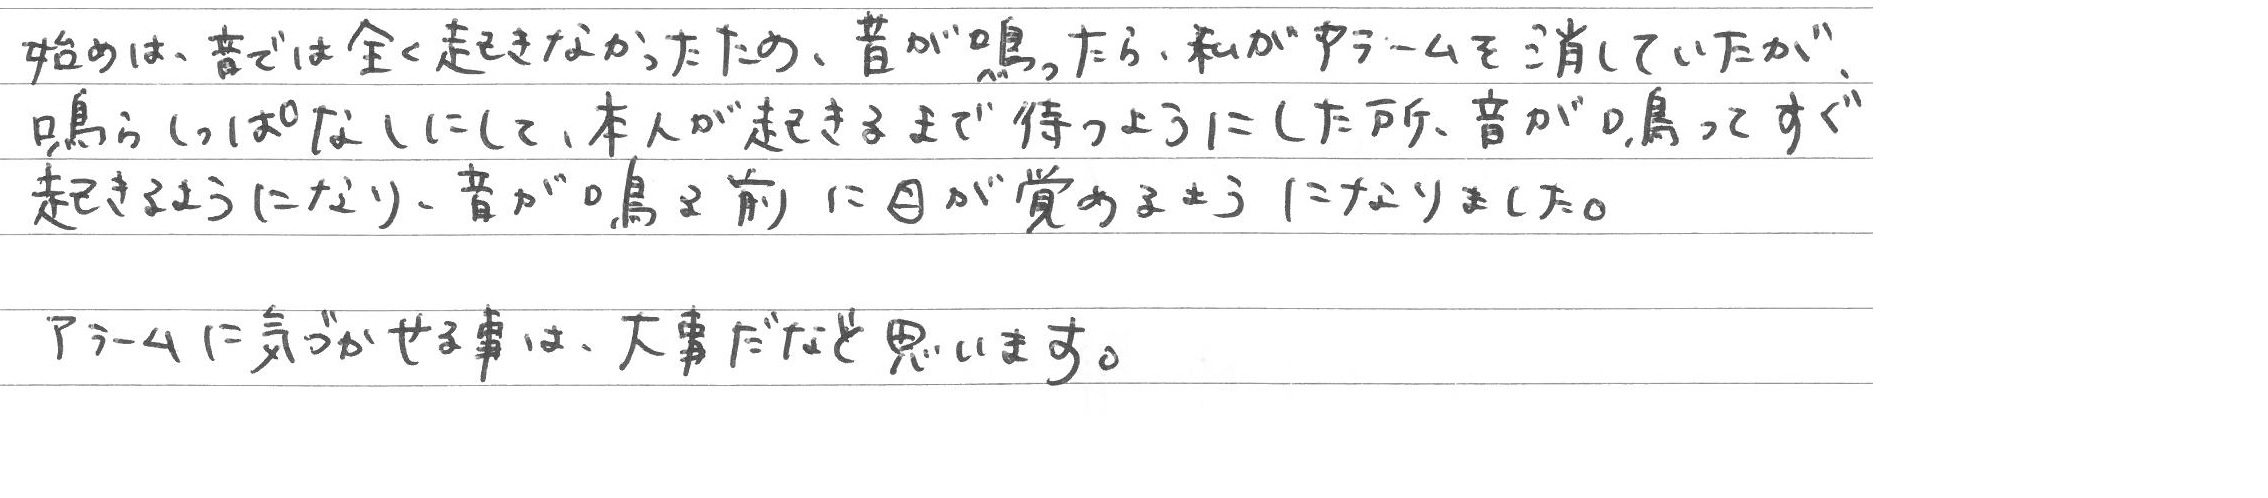 始めは、音では全く起きなかったため、音が鳴ったら、私がアラームを消していたが、
鳴らしっぱなしにして、本人が起きるまで待つようにした所、音が鳴ってすぐ
起きるようになり、音が鳴る前に目が覚めるようになりました。
アラームに気づかせる事は、大事だなと思います。